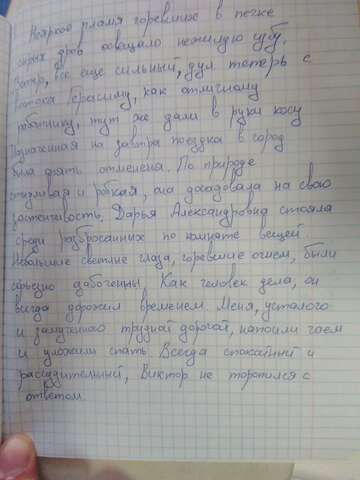 Неяркое пламя горевших в печке
сырых дров освещало нежилую избу.
Ветер, все еще сильный, дул теперь с
востока Герасиму, как отличному
работнику, тут же дали в руки косу
Назначенная на завтра поездка в город
была опять отменена. По природе
стыдливая и робкая, она досадовала на свою
застенчивость. Дарья Александровна стояла
среди разбросанных по комнате вещей
Небольшие светлые глаза, горевшие огнем, были
серьезно озабочены. Как человек дела, он
всегда дорожил временем. Меня, усталого
и замученного трудной дорогой, напоили чаем
и уложили спать Всегда спокойный и
рассудительный, Виктор не торопился с
ответом.